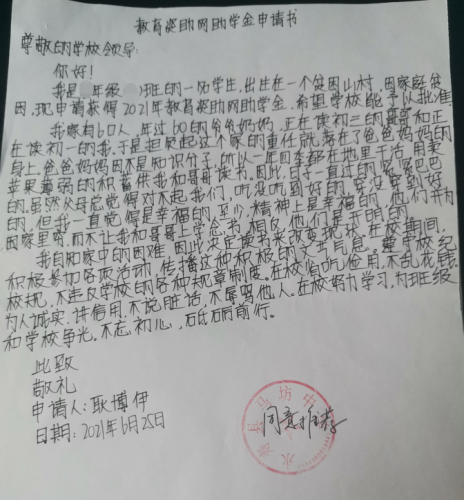 教育资助网助学金申请书
尊敬的学校领导:
你好!
我是 年级 班的一名学生,出生在一个贫困山村,因家庭贫
困,现申请获得2021年教育资助网助学金,希望学校能予以批准
我家有6口人,年过60的爷爷奶奶,正在读初三的哥哥和正
在读初一的我,于是担起这个家的重任就落在了爸爸妈妈的
身上,爸爸妈妈因不是知识分子,所以一年四季都在地里干活,用卖
苹果薄弱的积蓄供我和哥哥读书。因此,日子一直过的紧紧巴巴
的。虽然父母总觉得对不起我们,吃没吃到好的,穿没穿到好
的,但我一直觉得是幸福的,至少,精神上是幸福的,他们并为
因家里穷,而不让我和哥哥上学念书,相反,他们是开明的。
我自知家中的困难,因此决定读书来改变现状,在校期间,
积极参切各项活动,传播这种积极的文开气息。遵守校纪
校规,不违反学校的各种规章制度。在校省吃俭用,不乱花钱。
为人诚实,讲信用,不说脏话,不辱骂他人。在校努力学习,为班级
和学校争光。不忘初心,砥砺前行。
此致
敬礼
申请人:耿博伊
日期:2021年6月25日
同意推荐
永 县马坊中